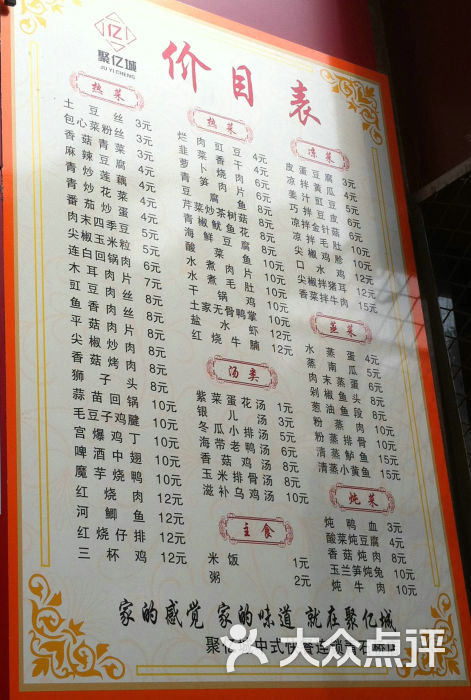 亿
聚亿城
JU YI CHENG
价目表
热菜
土豆丝 3元
包心菜粉丝 3元
香菇青菜 3元
麻辣豆腐 4元
青炒莲藕 4元
青炒花菜 4元
番茄炒蛋 5元
肉末四季豆 5元
尖椒玉米粒 5元
连白回锅肉 6元
木耳肉片 7元
豇豆肉丝 8元
鱼香肉丝 8元
平菇肉片 8元
尖椒炒肉 8元
香菇烤肉 8元
狮子头 8元
蒜苗回锅 10元
毛豆子鸡 10元
宫爆鸡丁 10元
啤酒中翅 10元
魔芋烧鸭 10元
红烧肉 12元
河鲫鱼 12元
红烧仔排 12元
三杯鸡 12元
热菜
烂肉豇豆 4元
韭菜香干 4元
萝卜烧肉 6元
青笋肉片 6元
豆腐鱼 8元
芹菜炒茶树菇 8元
青椒鱿鱼花 8元
海鲜豆腐 8元
酸菜鱼 10元
水煮肉片 10元
水煮毛肚 10元
干锅鸡 10元
土家无骨鸭掌 10元
盐水虾 12元
红烧牛腩 12元
汤类
紫菜蛋花汤 1元
银儿汤 3元
冬瓜小排汤 5元
海带老鸭汤 5元
香菇鸡汤 8元
玉米排骨汤 8元
滋补乌鸡汤 10元
主食
米饭 1元
粥 2元
凉菜
皮蛋豆腐 3元
凉拌黄瓜 4元
姜汁豇豆 5元
巧拌豆皮 6元
凉拌金针菇 6元
凉拌毛肚 10元
尖椒鸡胗 10元
口水鸡 12元
尖椒拌猪耳 12元
香菜拌牛肉 15元
蒸菜
水蒸蛋 4元
蒸南瓜 5元
肉末蒸蛋 6元
剁椒鱼头 8元
葱油鱼段 8元
粉蒸肉 10元
粉蒸排骨 10元
清蒸鲈鱼 15元
清蒸小黄鱼 15元
炖菜
炖鸭血 3元
酸菜炖豆腐 4元
香菇炖肉 8元
玉兰笋炖兔 10元
炖牛肉 10元
家的感觉 家的味道 就在聚亿城
聚亿城中式快餐连锁
大众点评